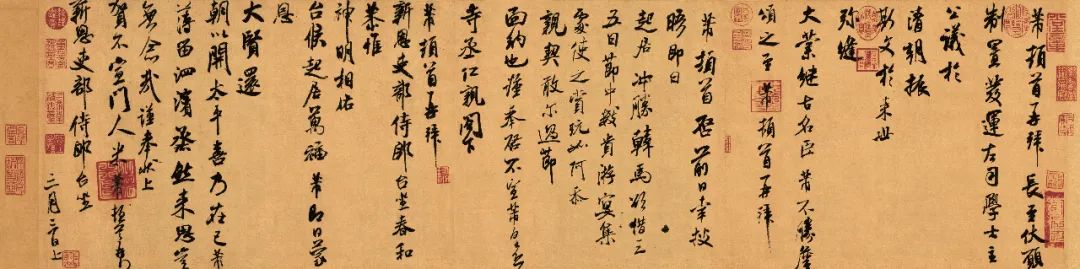 芾頓首再拜 長至伏願
制置發運左司學士主
公議於
清朝振
斯文於来世
弥縫
大業継古名臣芾不勝慶
頌之至 芾頓首再拜
芾頓首啓前日幸披
晤即日
起居沖勝韓馬欲借三
五日節中戲肯游宴集
處使之賞玩如何忝
親契敢尔過節
面納也謹奉啓不宣芾
寺丞仁親閣下
芾頓首再拜
新恩吏部侍郎台坐春和
恭惟
神明相佑
台候起居萬福芾即日蒙
恩
大賢還
朝以開太平喜乃在己芾
薄留泗濱丞然来思豈
無念哉謹奉狀上
賀不宣門人米芾
新恩吏部侍郎台坐
三月